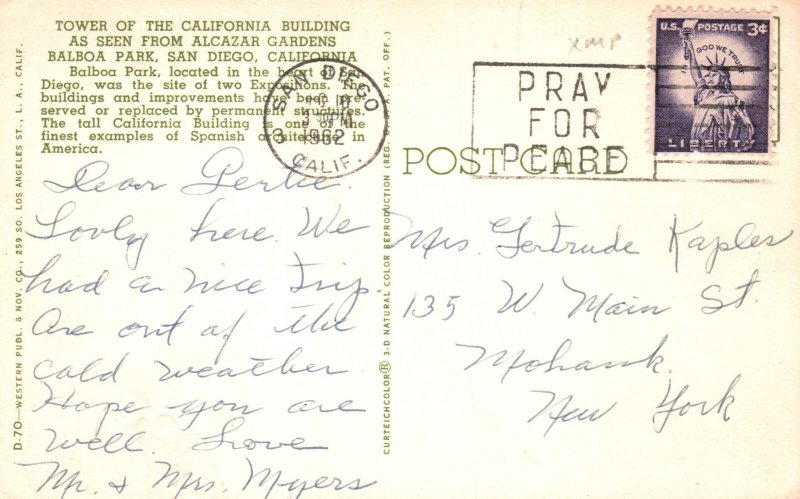 TOWER OF THE CALIFORNIA BUILDING
AS SEEN FROM ALCAZAR GARDENS
BALBOA PARK, SAN DIEGO, CALIFORNIA
Balboa Park, located in the heart of San
Diego, was the site of two Expositions. The
buildings and improvements have been pre-
served or replaced by permanent structures.
The tall California Building is one of the
finest examples of Spanish architecture in
America.
Dear Gertie.
Lovly here. We
had a nice trip.
Are out of the
cold weather
Hope you are
well. Love
Mr. & Mrs. Myers
D-70—WESTERN PUBL. & NOV. CO., 259 SO. LOS ANGELES ST., L. A., CALIF.
CURTEICHCOLOR® 3-D NATURAL COLOR REPRODUCTION (REG. U. S. A. PAT. OFF.)
SAN DIEGO
PM
1962
CALIF.
PRAY
FOR
PEACE
POST CARD
U.S. POSTAGE 3¢
IN GOD WE TRUST
LIBERTY
Mrs. Gertrude Kaples
135 W. Main St.
Mohawk
New York